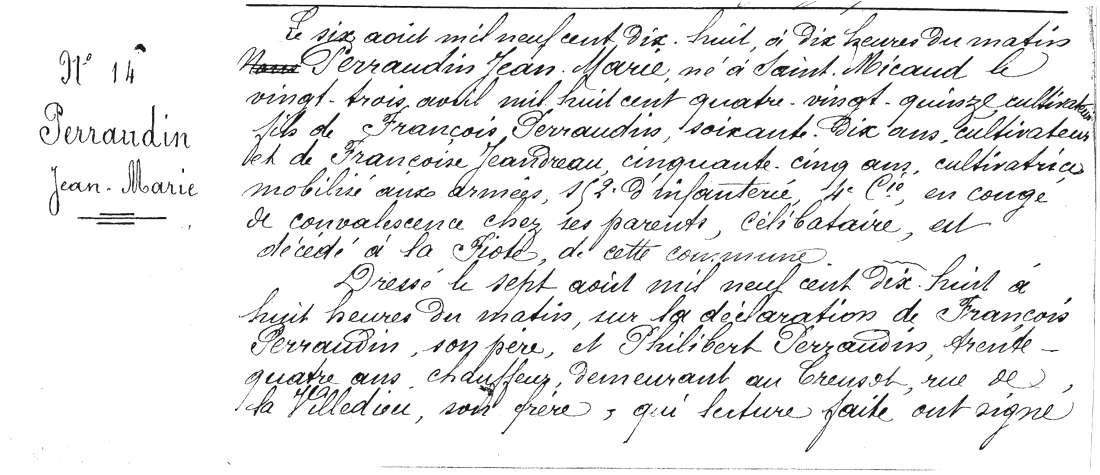 N° 14
Perraudin
Jean-Marie
Le six août mil neuf cent dix-huit, à dix heures du matin
Nous Perraudin Jean-Marie, né à Saint-Micaud le
vingt-trois avril mil huit cent quatre-vingt-quinze cultivateur
fils de François Perraudin, soixante-dix ans, cultivateur
et de Françoise Jeandreau, cinquante-cinq ans, cultivatrice
mobilisé aux armées, 152e d'infanterie, 4e Cie, en congé
de convalescence chez ses parents, célibataire, est
décédé à la Fiole, de cette commune
Dressé le sept août mil neuf cent dix-huit à
huit heures du matin, sur la déclaration de François
Perraudin, son père, et Philibert Perraudin, trente-
quatre ans, chauffeur, demeurant au Creusot, rue de
la Villedieu, son frère, qui lecture faite ont signé